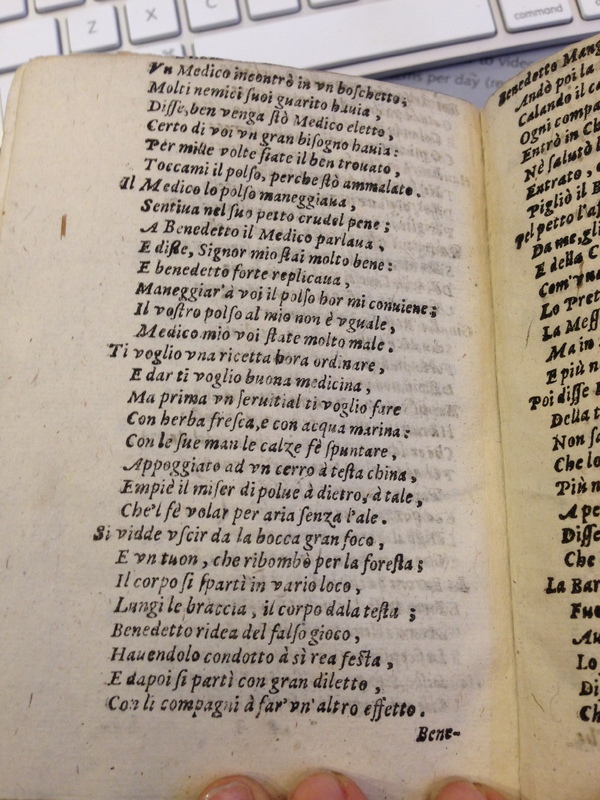 Z
X
C
command
option
to video
ons per day (re
Vn Medico incontrò in vn boſchetto;
Molti nemici ſuoi guarito hauia,
Diſſe, ben venga ſtò Medico eletto,
Certo di voi vn gran biſogno hauia:
Per mille volte ſiate il ben trouato,
Toccami il polſo, perche ſtò ammalato.
Il Medico lo polſo maneggiaua,
Sentiua nel ſuo petto crudel pene;
A Benedetto il Medico parlaua,
E diſſe, Signor mio ſtai molto bene:
E benedetto forte replicaua,
Maneggiar'à voi il polſo hor mi conuiene;
Il voſtro polſo al mio non è vguale,
Medico mio voi ſtate molto male.
Ti voglio vna ricetta hora ordinare,
E dar ti voglio buona medicina,
Ma prima vn ſeruitial ti voglio fare
Con herba freſca, e con acqua marina:
Con le ſue man le calze fè ſpuntare,
Appoggiato ad vn cerro à teſta china,
Empiè il miſer di polue à dietro, à tale,
Che'l fè volar per aria ſenza l'ale.
Si vidde vſcir da la bocca gran foco,
E vn tuon, che ribombò per la foreſta;
Il corpo ſi ſpartì in vario loco,
Lungi le braccia, il corpo dala teſta;
Benedetto ridea del falſo gioco,
Hauendolo condotto à sì rea feſta,
E dapoi ſi partì con gran diletto,
Con li compagni à far'vn'altro effetto.
Bene-
Benedetto Mang
Andò poi la
Calando il c
Ogni compa
Entrò in Ch
Nè ſalutò l
Entrato, e
Pigliò il B
Pel petto l'af
Da me, gli
E della C
Com'vna
Lo Pret
La Meſſ
Ma in
E più n
Poi diſſe
Della t
Non ſa
Che lo
Più n
A pe
Diſſe
Che
La Bar
Fue
Au
Lo
Di
Ch